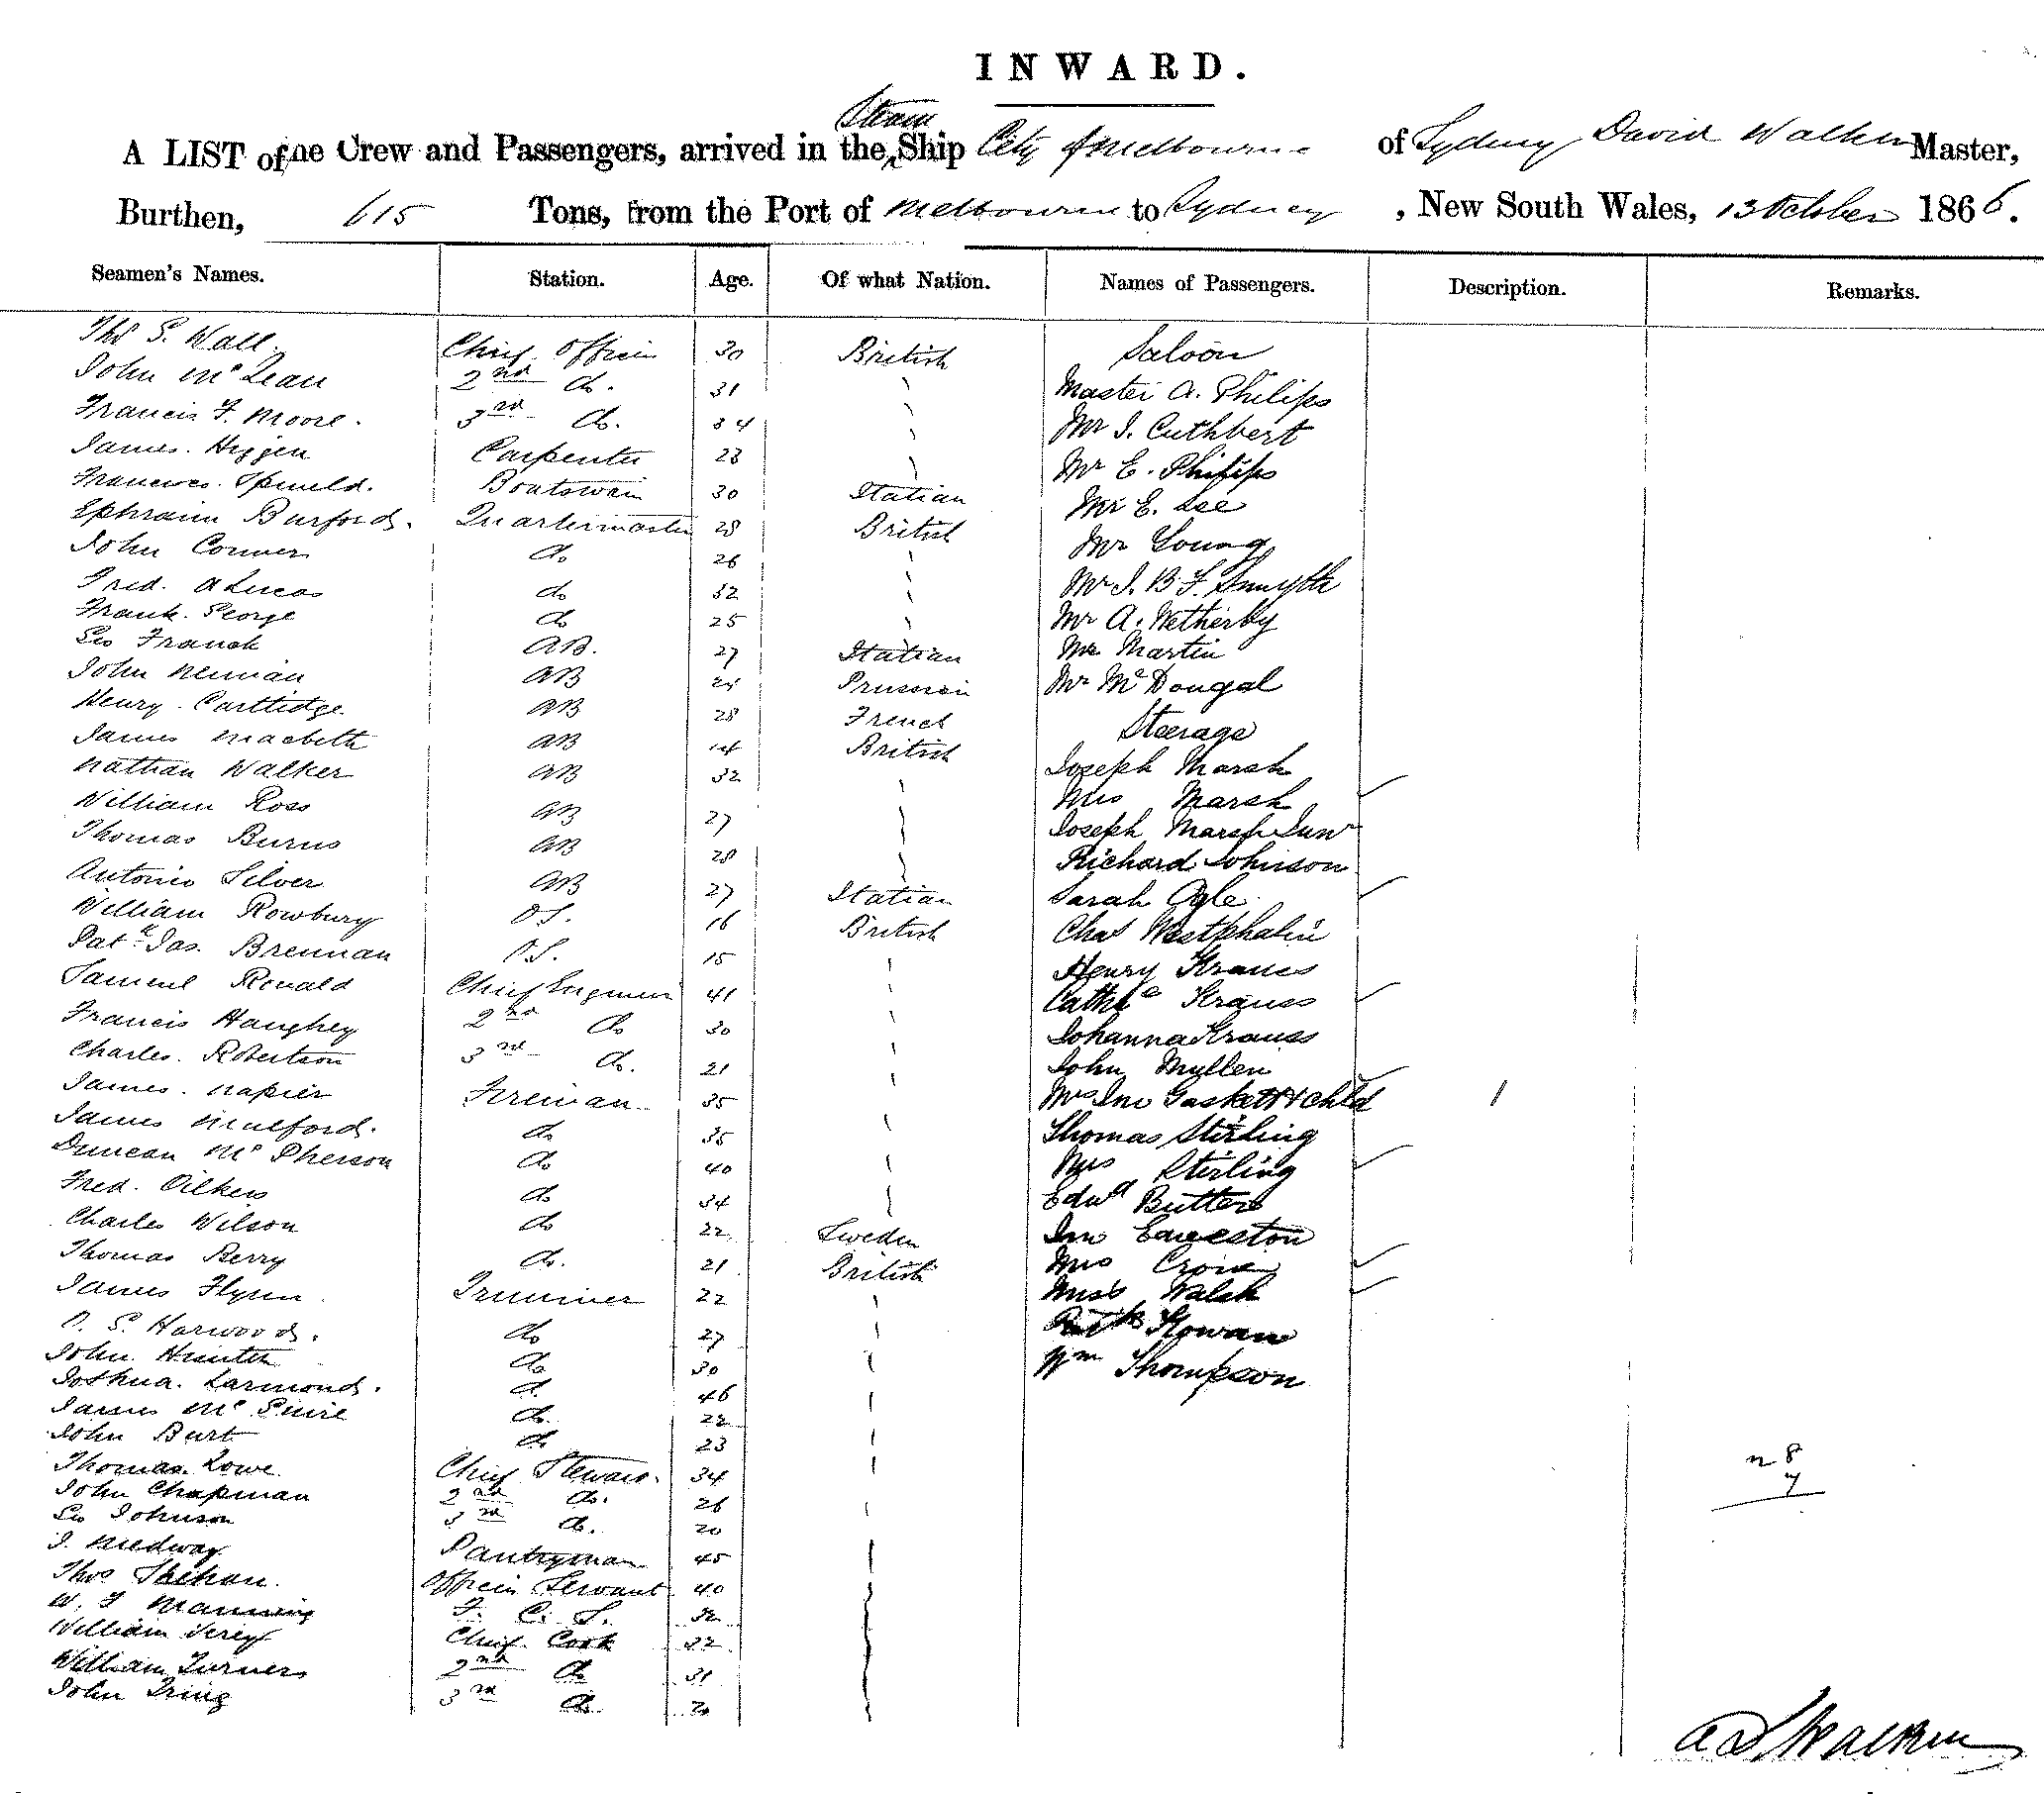 INWARD.
A LIST of ne Crew and Passengers, arrived in the Steam Ship City of Melbourne of Sydney David Walker Master,
Burthen, 615 Tons, from the Port of Melbourne to Sydney, New South Wales, 13 October 1866.
Seamen's Names. Station. Age. Of what Nation. Names of Passengers. Description. Remarks.
Thos S. Wall. Chief Officer 30 British Saloon
John McLean 2nd do. 31 Master A. Philips
Francis F. Moore. 3rd do. 34 Mr J. Cuthbert
James. Carpenter 28 Mr E. Philips
Boatswain 30 Italian Mr E. Lee
Ephraim Burford. Quartermaster 28 British Mr Young
John Conner do 26 Mr J. B. F. Smyth
Fred. A Lucas do 32 Mr A. Wetherby
Frank. George do 25 Mr Martin
Geo Franck AB. 27 Italian Mr McDougal
John Neuman AB Prussian Steerage
Henry. Carttidge AB 28 French Joseph Marsh
James Macbeth AB British Mrs Marsh
Nathan Walker AB 32 Joseph Marsh Junr
William Ross AB 27 Richard Johnson
Thomas Burns AB 28 Sarah Ogle
Antonio Silver AB 27 Italian Chas Westphalin
William Rowbury O.S. 16 British Henry Kraues
Patk Jas. Brennan O.S. 15 Cathe Krauss
Samuel Ronald Chief Engineer 41 Johanna Krauss
Francis Haughey 2nd do 30 John Mullen
Charles. Robertson 3rd do. 21 Mrs Jno Gaskett & Chld 1
James. Napier Fireman 35 Thomas Stirling
James Mulford. do 35 Mrs Stirling
Duncan McPherson do 40 Edwd Butters
Fred. Oilkers do 34 Jno
Charles Wilson do 22 Sweden Mrs
Thomas Berry do. 21 British Miss Walsh
James Flynn Trimmer 22
S. Harwood. do 27 Wm Thompson
John. Hunter do 30
Joshua. Larmond. do 46
James McGuire do. 22
John Burt do 23
Thomas. Lowe Chief Steward. 34
John Chapman 2nd do. 26
Geo Johnson 3rd do. 20
J. Medway Pantryman 45
Thos Officers Servant 40
W. J Manning F. C. S. 32
William Chief Cook 32
William Turner 2nd do 31
John Tring 3rd do. 20
n 8
7
Walker